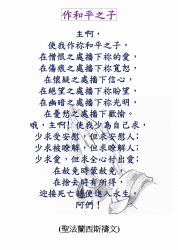 作和平之子
主啊，
使我作祢和平之子，
在憎恨之處播下祢的愛，
在傷痕之處播下祢寬恕，
在懷疑之處播下信心，
在絕望之處播下盼望，
在幽暗之處播下祢光明，
在憂愁之處播下歡愉。
哦，主啊！使我少為自己求，
少求受安慰，但求安慰人；
少求被瞭解，但求瞭解人；
少求愛，但求全心付出愛；
在赦免時蒙赦免，
在捨去時有所得，
迎接死亡時便進入永生，
阿們！
(聖法蘭西斯禱文)